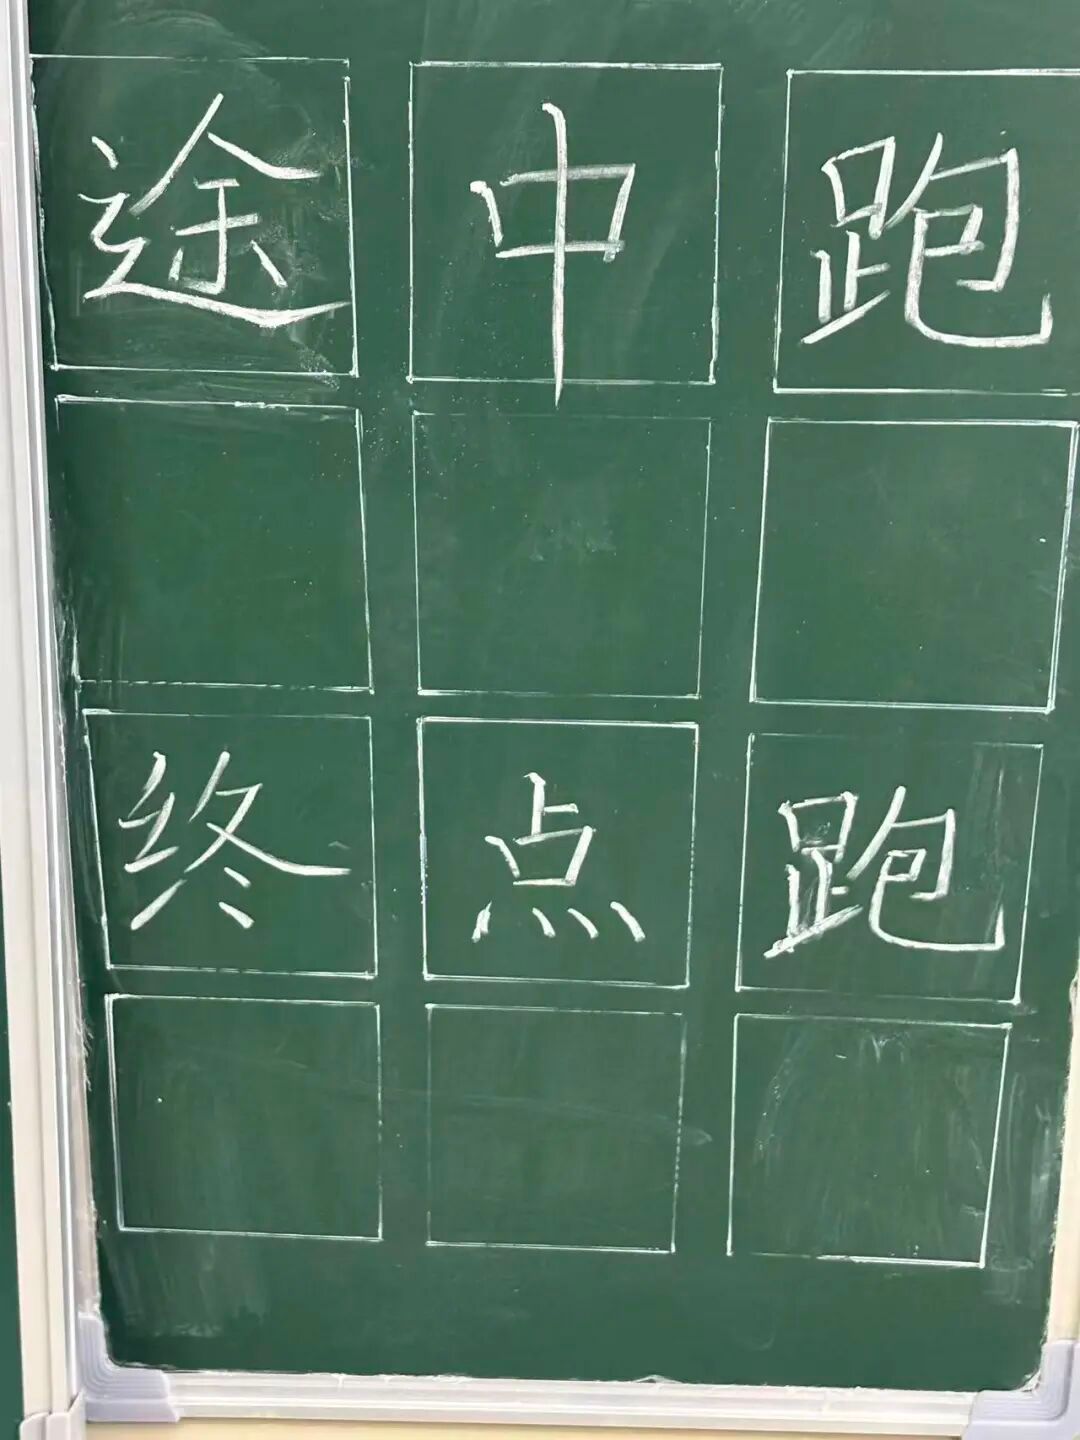 途中跑
终点跑